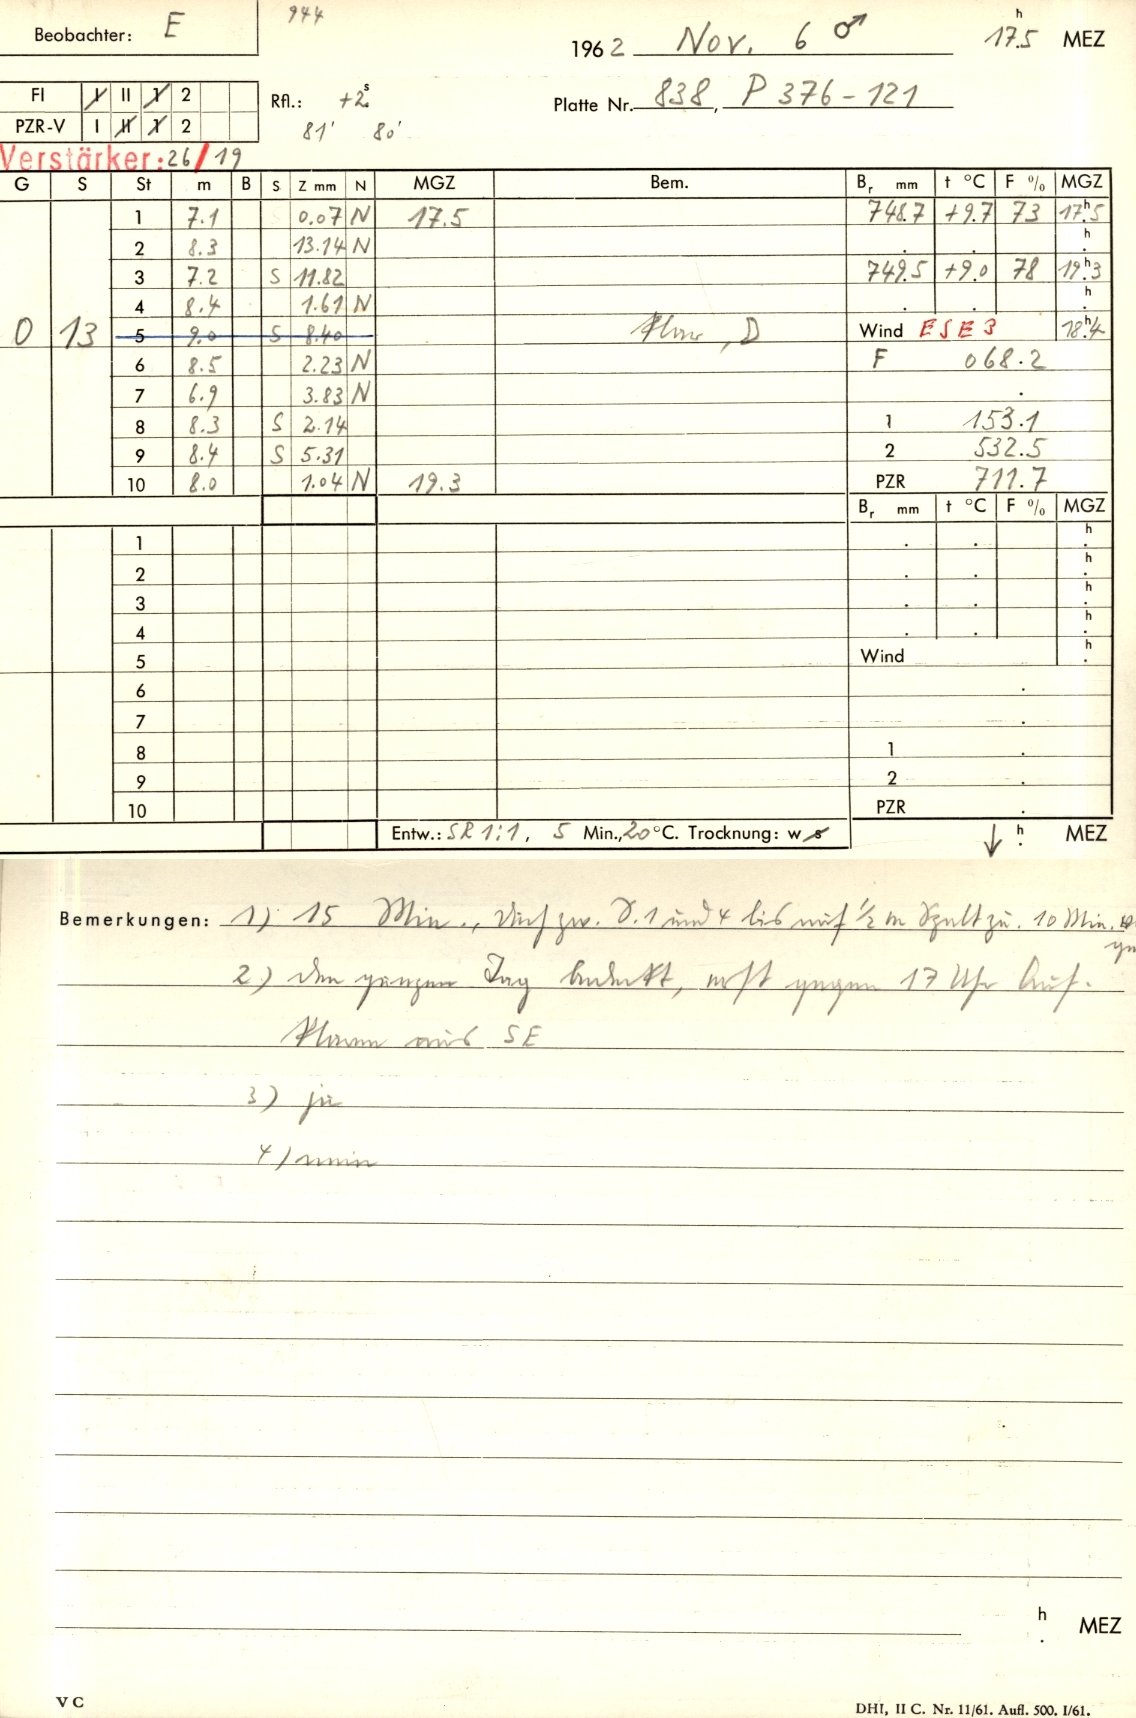 Beobachter: E
944
1962 Nov. 6 ♂ 17.5 h MEZ
FI I II 1 2
PZR-V I II 1 2
Rfl.: +2s
81' 80'
Platte Nr. 838, P 376-121
Verstärker: 26/19
G S St m B S Z mm N MGZ Bem. Br mm t °C F % MGZ
1 7.1 0.07 N 17.5 748.7 +9.7 73 17h.5
2 8.3 13.14 N . . h.
3 7.2 S 11.82 749.5 +9.0 78 19h.3
4 8.4 1.61 N . . h.
0 13 5 9.0 S 8.40 klar, D Wind ESE 3 18h.4
6 8.5 2.23 N F 068.2
7 6.9 3.83 N .
8 8.3 S 2.14 1 153.1
9 8.4 S 5.31 2 532.5
10 8.0 1.04 N 19.3 PZR 711.7
Br mm t °C F % MGZ
1 . . h.
2 . . h.
3 . . h.
4 . . h.
5 Wind h.
6 .
7 .
8 1 .
9 2 .
10 PZR .
Entw.: SR 1:1, 5 Min., 20°C. Trocknung: w s
↓ h. MEZ
Bemerkungen: 1) 15 Min., Dach zw. S. 1 und 4 bis auf ½ m Spalt zu. 10 Min.
2) den ganzen Tag bedeckt, erst gegen 17 Uhr Auf-
klaren aus SE
3) ja
4) nein
h. MEZ
V C
DHI, II C. Nr. 11/61. Aufl. 500. I/61.